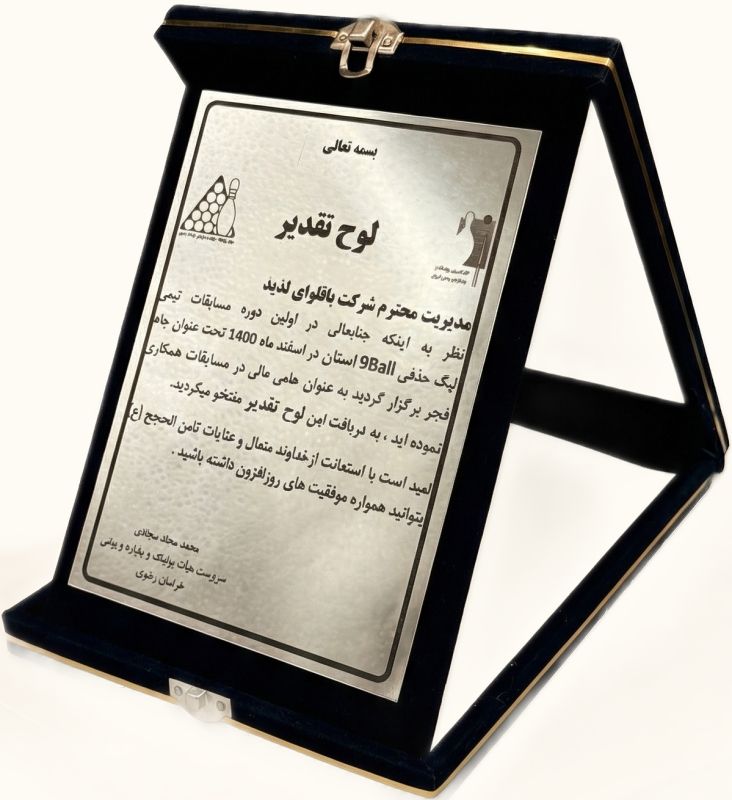 بسمه تعالی
لوح تقدیر
مدیریت محترم شرکت باقلوای لذید
نظر به اینکه جنابعالی در اولین دوره مسابقات تیمی
لیگ حذفی 9Ball استان در اسفند ماه 1400 تحت عنوان جام
فجر برگزار گردید به عنوان حامی مالی در مسابقات همکاری
نموده اید ، به دریافت این لوح تقدیر مفتخو میگردید.
امید است با استعانت از خداوند متعال و عنایات ثامن الحجج (ع)
بتوانید همواره موفقیت های روزافزون داشته باشید .
محمد
هیأت بولینگ و
خراسان رضوی